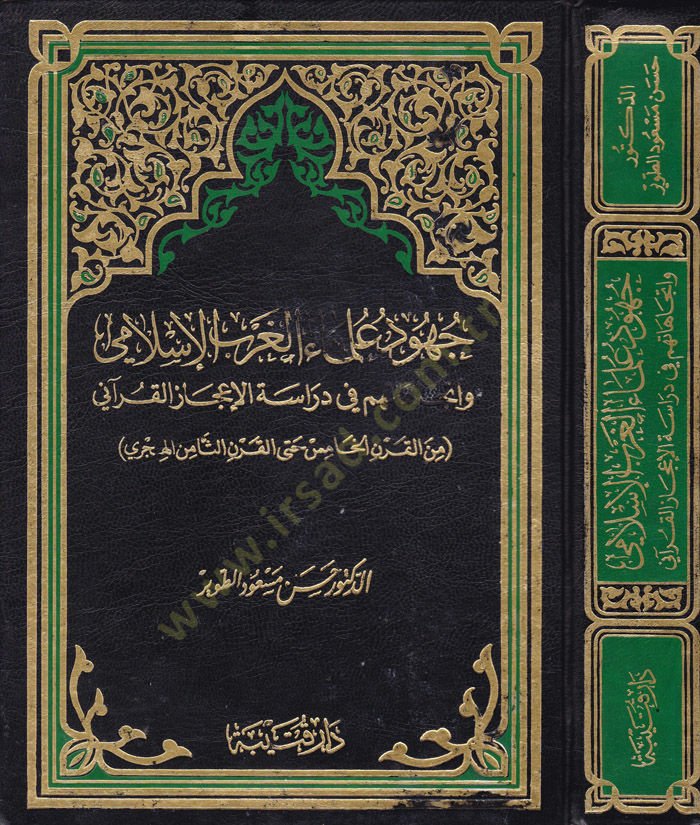 جُهُودُ عُلَمَاءِ الغَرْبِ الإِسْلَامِي
واتجاهاتهم في دراسة الإعجاز القُرآني
(مِنَ القَرْنِ الخَامِسْ حَتى القَرْنِ الثَّامِن الهِجْرِي)
الدكتور حسن مسعود الطوير
دَار قُتَيبَة
www.irsad.com.tr
الدّكتُور
حَسَن مَسْعُود الطوير
جُهُودُ عُلَمَاءِ الغَرْبِ الإِسْلَامِي
واتجاهاتهم في دراسة الإعجاز القُرآني
دَار قُتَيبَة